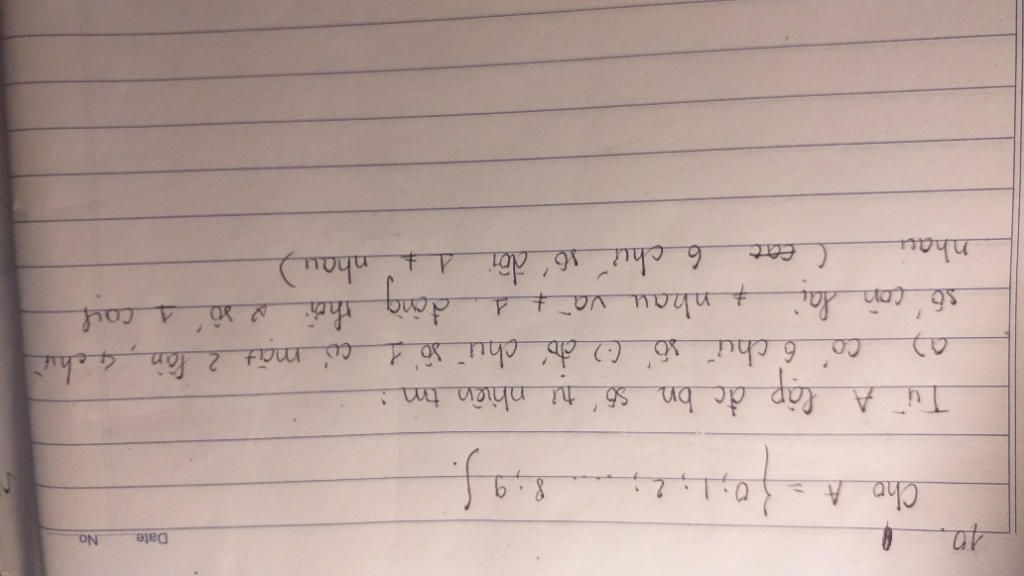 Date No
10.
Cho A = { 0; 1; 2; ..... 8; 9 }.
Từ A lập đc bn số tự nhiên tm:
a) có 6 chữ số (.) đó chữ số 1 có mặt 2 lần, 4 chữ
số còn lại ≠ nhau và ≠ 1. đồng thời 2 số 1 cạnh
nhau ( các 6 chữ số đôi 1 ≠ nhau )